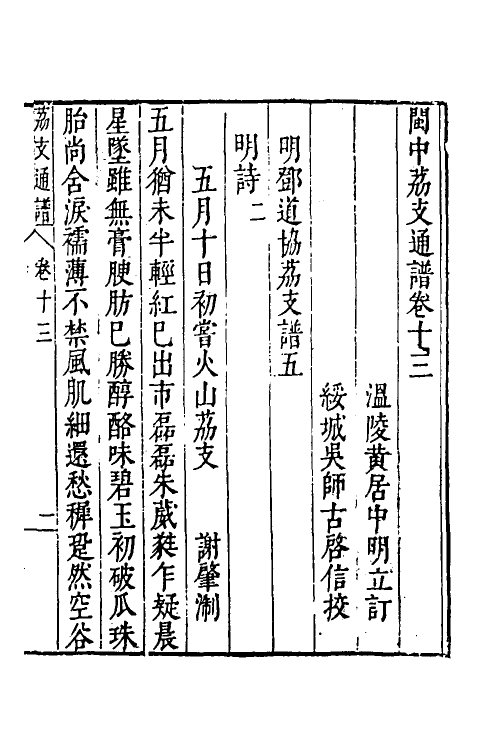 閩中荔支通譜卷十三
溫陵黃居中明立訂
綏城吳師古啓信校
明鄧道協荔支譜五
明詩二
五月十日初嘗火山荔支 謝肇淛
五月猶未半輕紅巳出市磊磊朱葳蕤乍疑晨
星墜雖無膏腴肪巳勝醇酪味碧玉初破瓜珠
胎尚含淚襦薄不禁風肌細還愁穉跫然空谷
荔支通譜 卷十三 二